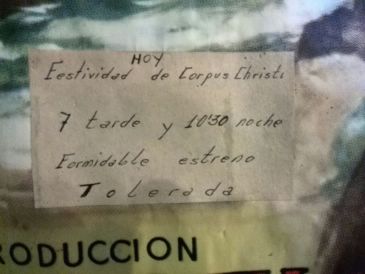 HOY
Festividad de Corpus Christi
7 tarde y 10'30 noche
Formidable estreno
Tolerada
RODUCCION